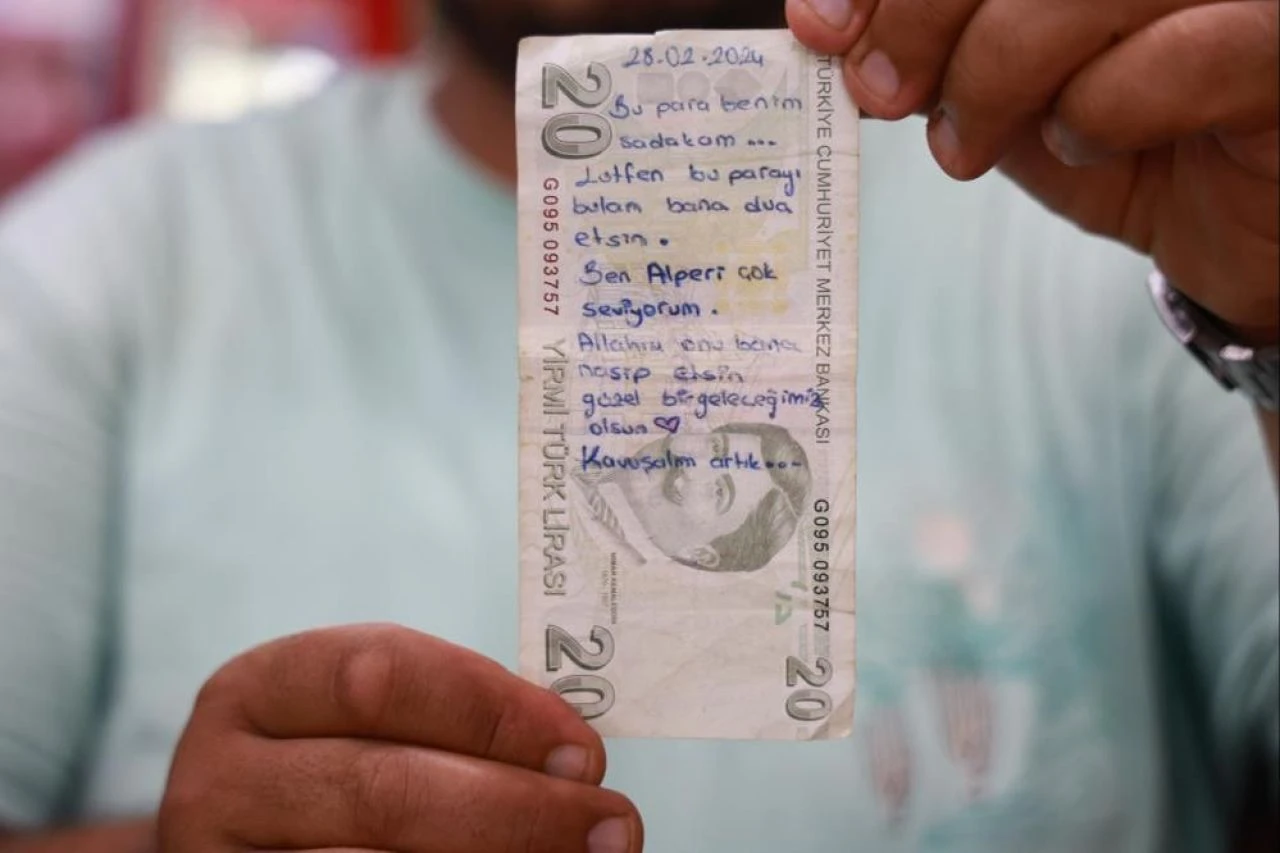 28.02.2024
Bu para benim
sadakam ...
Lutfen bu parayı
bulam bana dua
etsin.
Ben Alperi çok
seviyorum.
Allahım onu bana
nasip etsin
güzel bir geleceğimiz
olsun ♡
Kavuşalım artık...
20
G095 093757
YİRMİ TÜRK LİRASI
20
TÜRKİYE CUMHURİYET MERKEZ BANKASI
G095 093757
20
MİMAR KEMALEDDİN